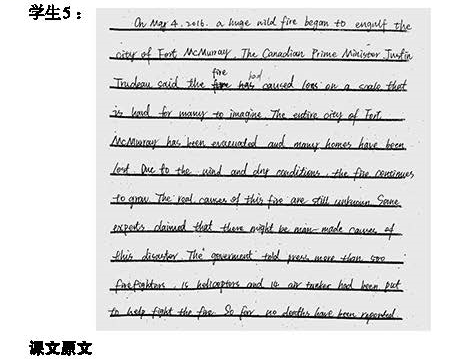 学生5：
On May 4, 2016. a huge wild fire began to engulf the
city of Fort McMurray. The Canadian Prime Minister Justin
fire had
Trudeau said the fire has caused loss on a scale that
is hard for many to imagine. The entire city of Fort
McMurray has been evacuated and many homes have been
lost. Due to the wind and dry conditions, the fire continues
to grow. The real causes of this fire are still unknown. Some
experts claimed that there might be man-made causes of
this disaster. The goverment told press more than 500
firefighters, 15 helicopters and 14 air tanker had been put
to help fight the fire. So far no deaths have been reported.
课文原文